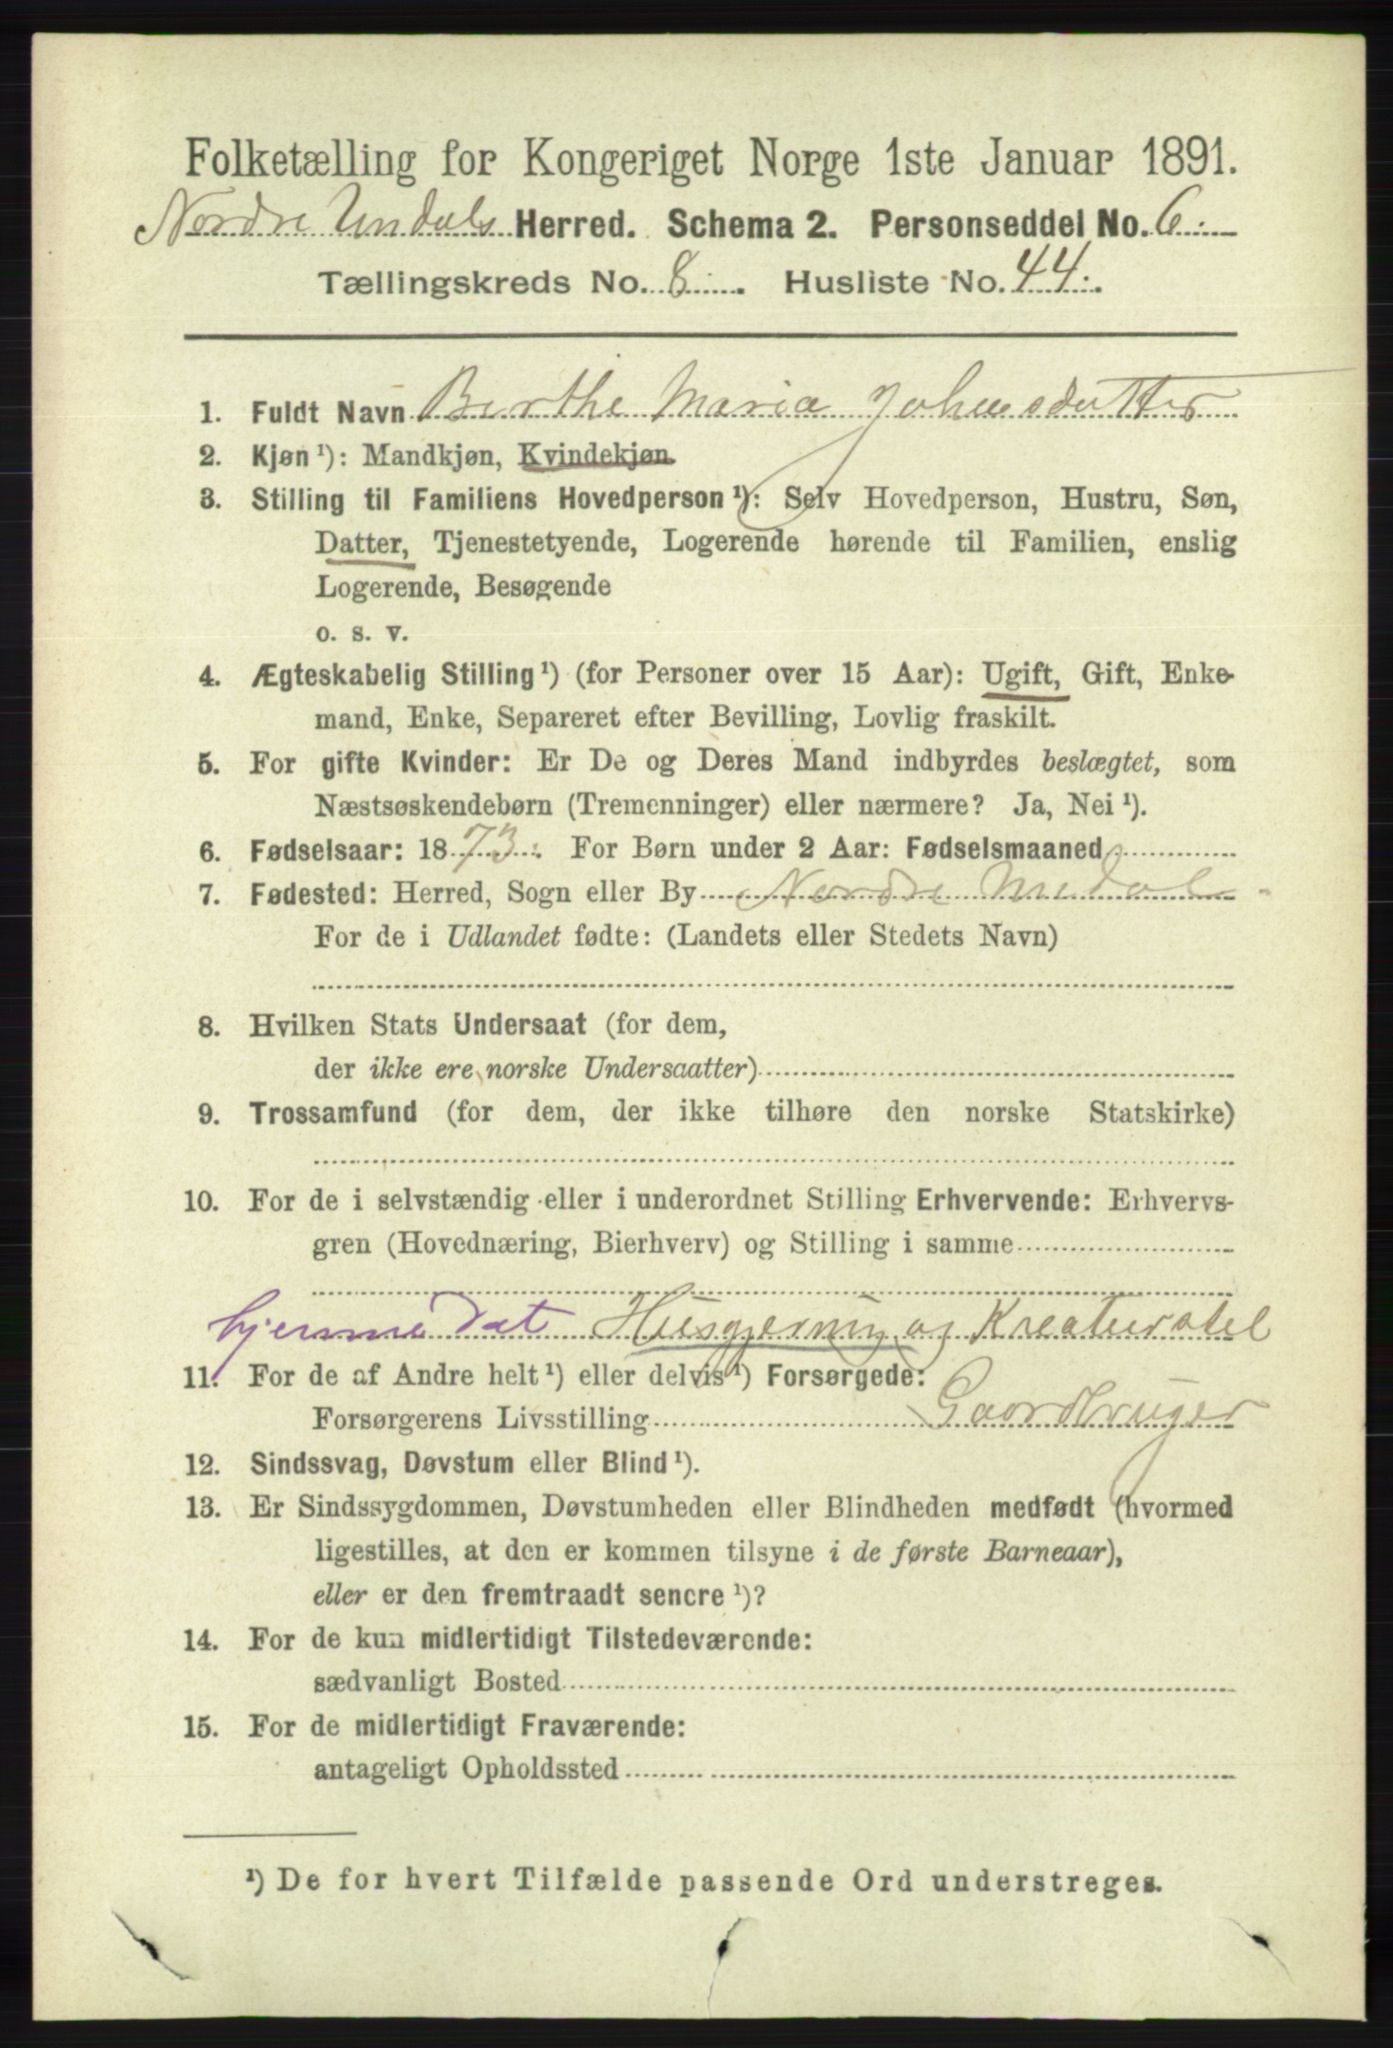 Folketælling for Kongeriget Norge 1ste Januar 1891.
Nordre Undals Herred. Schema 2. Personseddel No. 6.
Tællingskreds No. 8. Husliste No. 44.
1. Fuldt Navn Berthe Maria Johnsdatter
2. Kjøn ¹): Mandkjøn, Kvindekjøn
3. Stilling til Familiens Hovedperson ¹): Selv Hovedperson, Hustru, Søn,
Datter, Tjenestetyende, Logerende hørende til Familien, enslig
Logerende, Besøgende
o. s. v.
4. Ægteskabelig Stilling ¹) (for Personer over 15 Aar): Ugift, Gift, Enke-
mand, Enke, Separeret efter Bevilling, Lovlig fraskilt.
5. For gifte Kvinder: Er De og Deres Mand indbyrdes beslægtet, som
Næstsøskendebørn (Tremenninger) eller nærmere? Ja, Nei ¹).
6. Fødselsaar: 1873. For Børn under 2 Aar: Fødselsmaaned
7. Fødested: Herred, Sogn eller By Nordre Undal
For de i Udlandet fødte: (Landets eller Stedets Navn)
8. Hvilken Stats Undersaat (for dem,
der ikke ere norske Undersaatter)
9. Trossamfund (for dem, der ikke tilhøre den norske Statskirke)
10. For de i selvstændig eller i underordnet Stilling Erhvervende: Erhvervs-
gren (Hovednæring, Bierhverv) og Stilling i samme
hjemme Dat Husgjerning og Kreaturstel
11. For de af Andre helt ¹) eller delvis ¹) Forsørgede:
Forsørgerens Livsstilling Gaardbruger
12. Sindssvag, Døvstum eller Blind ¹).
13. Er Sindssygdommen, Døvstumheden eller Blindheden medfødt (hvormed
ligestilles, at den er kommen tilsyne i de første Barneaar),
eller er den fremtraadt senere ¹)?
14. For de kun midlertidigt Tilstedeværende:
sædvanligt Bosted
15. For de midlertidigt Fraværende:
antageligt Opholdssted
¹) De for hvert Tilfælde passende Ord understreges.